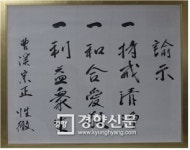 諭示
一持戒淸
一和合愛
一利益衆
曹溪宗正 性徹
경향신문
www.kyunghyang.com